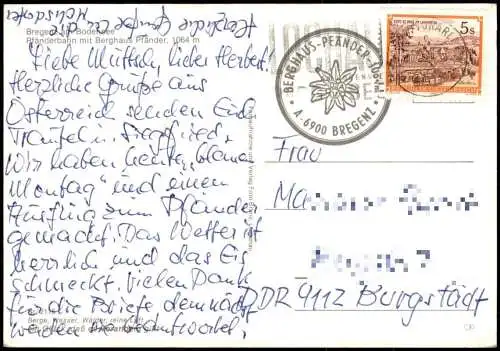 Herzliche Grüße an die
Bregenz am Bodensee
Pfänderbahn mit Berghaus Pfänder, 1064 m
Liebe Mutti, lieber Herbert.
Herzliche Grüße aus
Österreich senden Euch
Traudel u. Siegfried.
Wir haben heute "blauen
Montag" und einen
Ausflug zum Pfänder
gemacht. Das Wetter ist
herrlich und das Eis
schmeckt. Vielen Dank
für die Briefe demnächst
werden
BERGHAUS-PFÄNDER-1064m
A-6900 BREGENZ
5 s
Frau
DDR 9112 Burgstädt